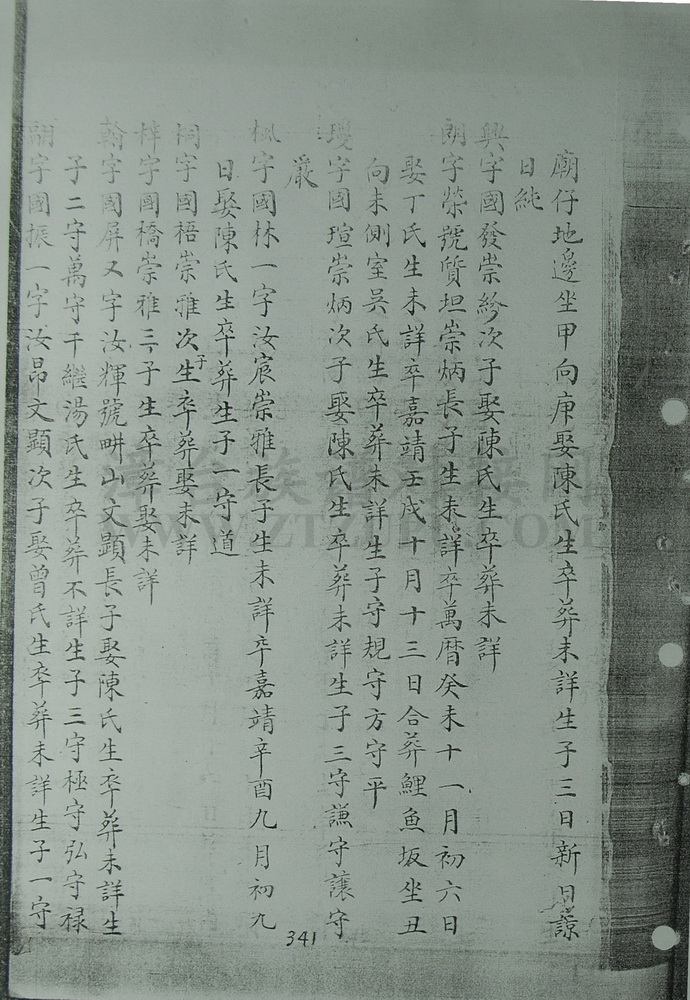 廟仔地邊坐甲向庚娶陳氏生卒葬未詳生子三日新日諒
日純
興字國發崇紾次子娶陳氏生卒葬未詳
朗字榮號質坦崇炳長子生未詳卒萬曆癸未十一月初六日
娶丁氏生未詳卒嘉靖壬戌十月十三日合葬鯉魚坂坐丑
向未側室吳氏生卒葬未詳生子守規守方守平
瑷字國瑄崇炳次子娶陳氏生卒葬未詳生子三守謙守讓守
嚴
楓字國林一字汝宸崇雅長子生未詳卒嘉靖辛酉九月初九
日娶陳氏生卒葬生子一守道
桐字國梧崇雅次子生卒葬娶未詳
梓字國橋崇雅三子生卒葬娶未詳
翰字國屏又字汝輝號畊山文顯長子娶陳氏生卒葬未詳生
子二守萬守千繼湯氏生卒葬不詳生子三守極守弘守祿
字國振一字汝昂文顯次子娶曾氏生卒葬未詳生子一守
341
WWW.ZTZUPU.COM